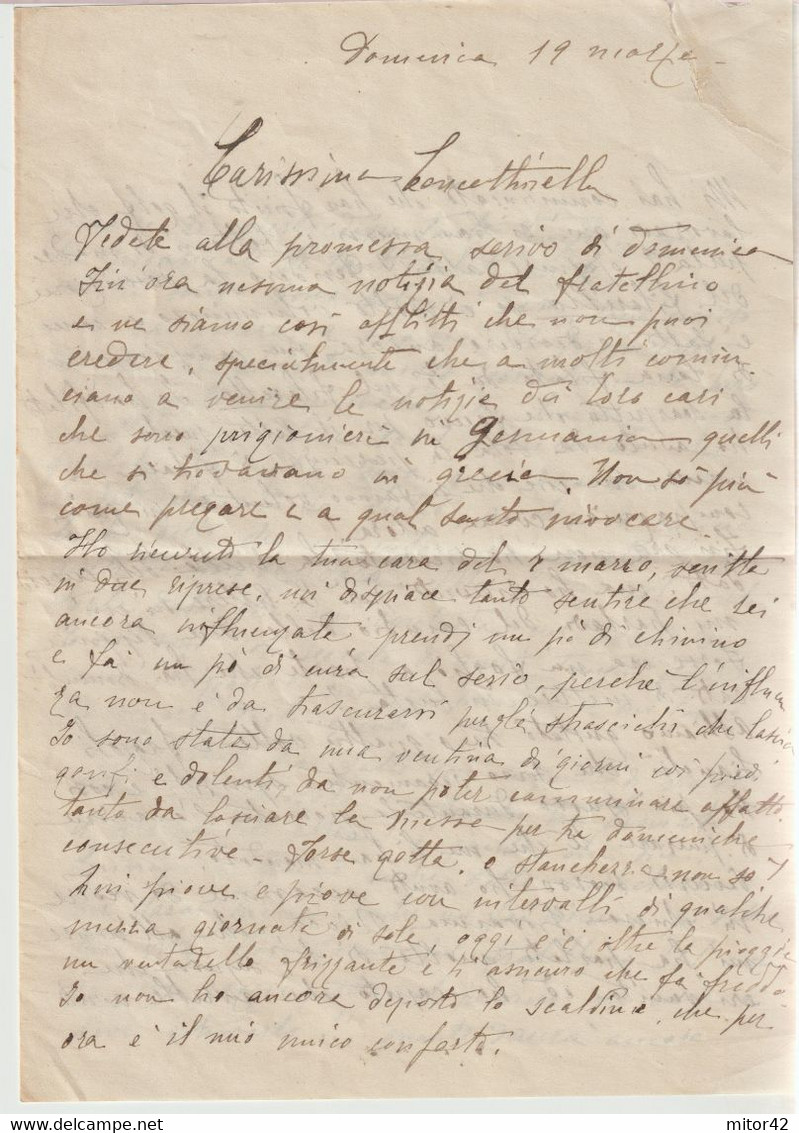 Domenica 19 marzo -
Carissima Concettinella
Fedele alla promessa scrivo di domenica
Fin'ora nessuna notizia del fratellino
e ne siamo così afflitti che non puoi
credere, specialmente che a molti comin-
ciano a venire le notizie dai loro cari
che sono prigionieri in Germania quelli
che si trovavano in grecia. Non so più
come pregare e a qual santo invocare.
Ho ricevuto la tua cara del 7 marzo, scritta
in due riprese, mi dispiace tanto sentire che sei
ancora influenzata prendi un pò di chinino
e fa un pò di cura sul serio, perché l'influen
za non è da trascurarsi per gli strascichi che lascia
Io sono stata da una ventina di giorni coi piedi
gonfi e dolenti da non poter camminare affatto
tanto da lasciare la messa per tre domeniche
consecutive - Forse gotta, o stanchezza non so
Qui piove e piove con intervalli di qualche
mezza giornata di sole, oggi c'è oltre la pioggia
un venticello frizzante e ti assicuro che fa freddo
Io non ho ancora deposto lo scaldino, che per
ora è il mio unico conforto.
mitor42